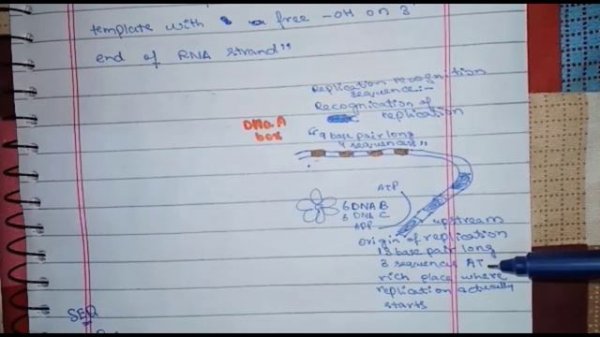 template with a free -OH on 3'
end of RNA strand"
Replication recognition
sequence:-
Recognication of
replication
DNA A
box
"9 base pair long
4 sequences"
ATP
6 DNA B
6 DNA C
ADP
upstream
Origin of replication
13 base pair long
3 sequences AT
rich place where
replication actually
starts
SEQ